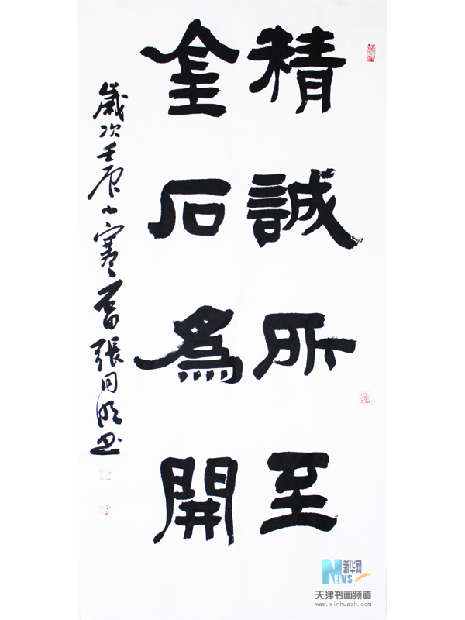 精誠所至
金石為開
歲次壬辰小寒前張同明書
新华网
NEWS
天津书画频道
www.xinhuash.com